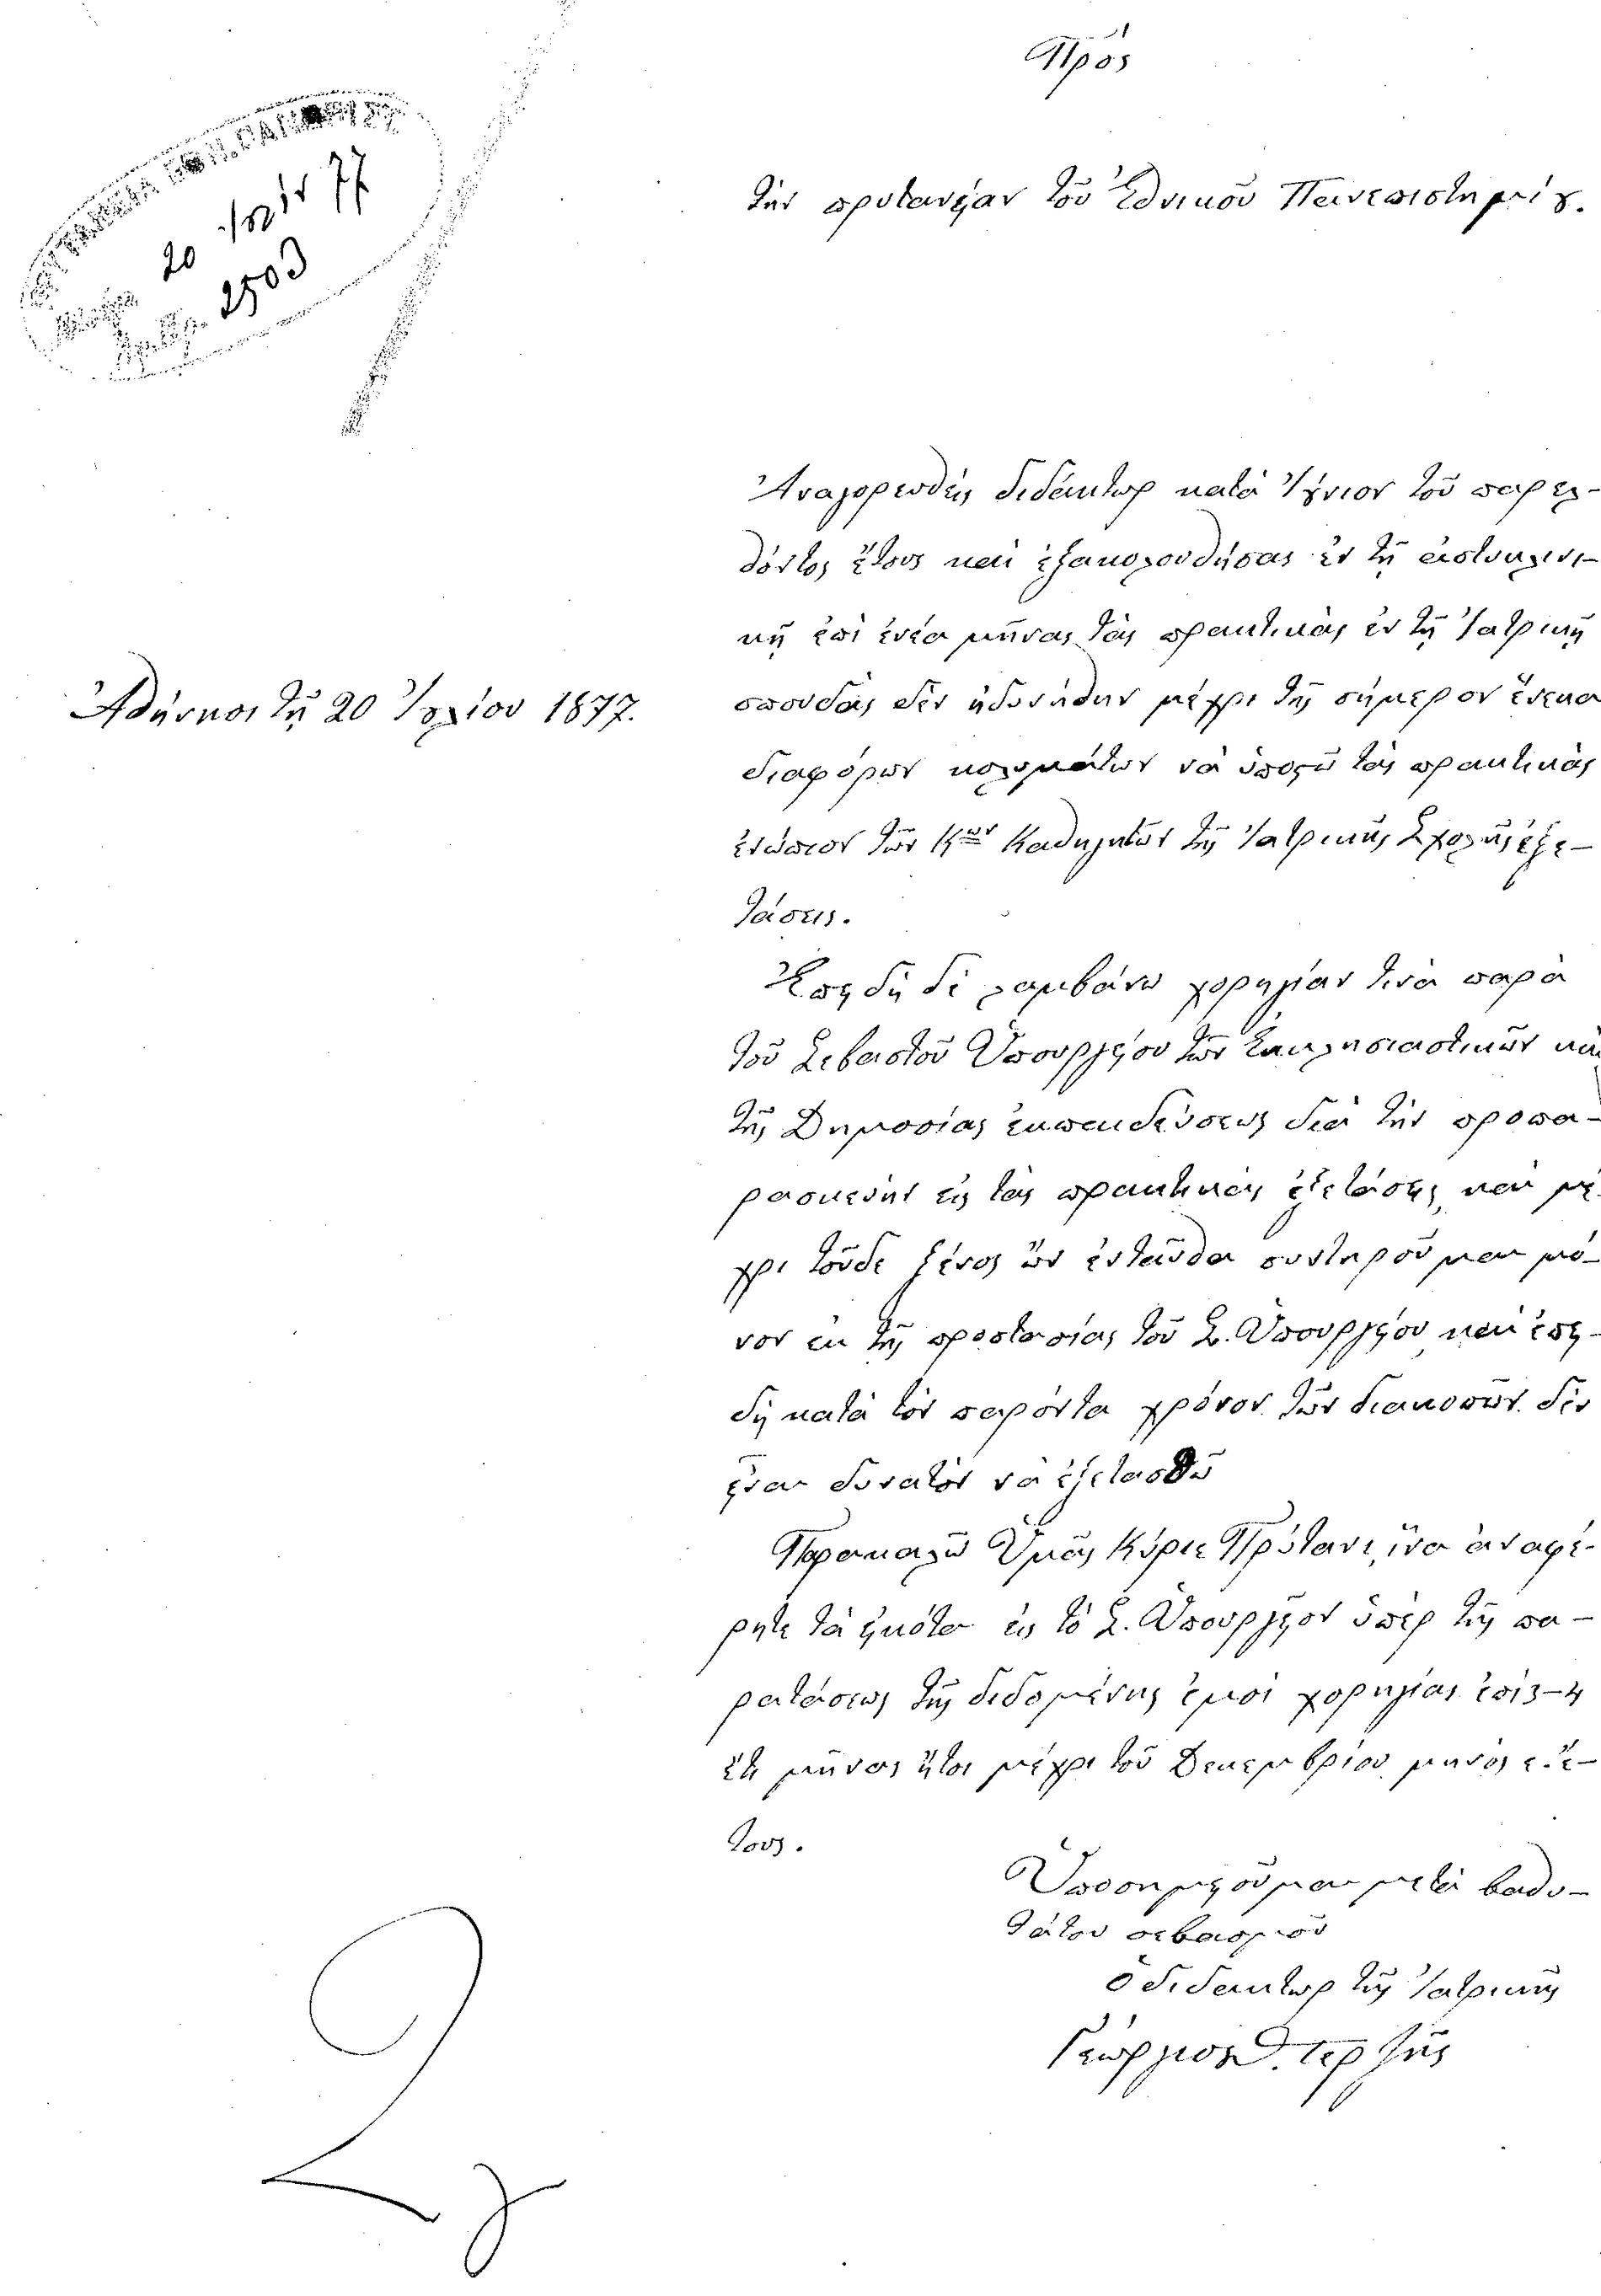 Πρὸς
τὴν πρυτανείαν τοῦ Ἐθνικοῦ Πανεπιστημίου.
20 77
2503
Ἀναγορευθεὶς διδάκτωρ κατὰ Ἰούνιον τοῦ παρελ-
θόντος ἔτους καὶ ἐξακολουθήσας ἐν τῇ ἀστυκλινι-
κῇ ἐπὶ ἐνέα μῆνας τὰς πρακτικὰς ἐν τῇ Ἰατρικῇ
Ἀθήνησι τῇ 20 Ἰουλίου 1877.
σπουδὰς δὲν ἠδυνήθην μέχρι τῆς σήμερον ἕνεκα
διαφόρων κωλυμάτων νὰ ὑποστῶ τὰς πρακτικὰς
ἐνώπιον τῶν Κων Καθηγητῶν τῆς Ἰατρικῆς Σχολῆς ἐξε-
τάσεις.
Ἐπειδὴ δὲ λαμβάνω χορηγίαν τινὰ παρὰ
τοῦ Σεβαστοῦ Ὑπουργείου τῶν Ἐκκλησιαστικῶν καὶ
τῆς Δημοσίας ἐκπαιδεύσεως διὰ τὴν προπα-
ρασκευὴν εἰς τὰς πρακτικὰς ἐξετάσεις, καὶ μέ-
χρι τοῦδε ξένος ὢν ἐνταῦθα συντηροῦμαι μό-
νον ἐκ τῆς προστασίας τοῦ Σ. Ὑπουργείου καὶ ἐπει-
δὴ κατὰ τὸν παρόντα χρόνον τῶν διακοπῶν δὲν
εἶναι δυνατὸν νὰ ἐξετασθῶ
Παρακαλῶ Ὑμᾶς Κύριε Πρύτανι, ἵνα ἀναφέ-
ρητε τὰ εἰκότα εἰς τὸ Σ. Ὑπουργεῖον ὑπὲρ τῆς πα-
ρατάσεως τῆς διδομένης ἐμοὶ χορηγίας ἐπὶ 3-4
ἔτι μῆνας ἤτοι μέχρι τοῦ Δεκεμβρίου μηνὸς ἐ. ἔ-
τους.
Ὑποσημειοῦμαι μετὰ βαθυ-
τάτου σεβασμοῦ
ὁ διδάκτωρ τῆς Ἰατρικῆς
Γεώργιος Δ. Τερζῆς